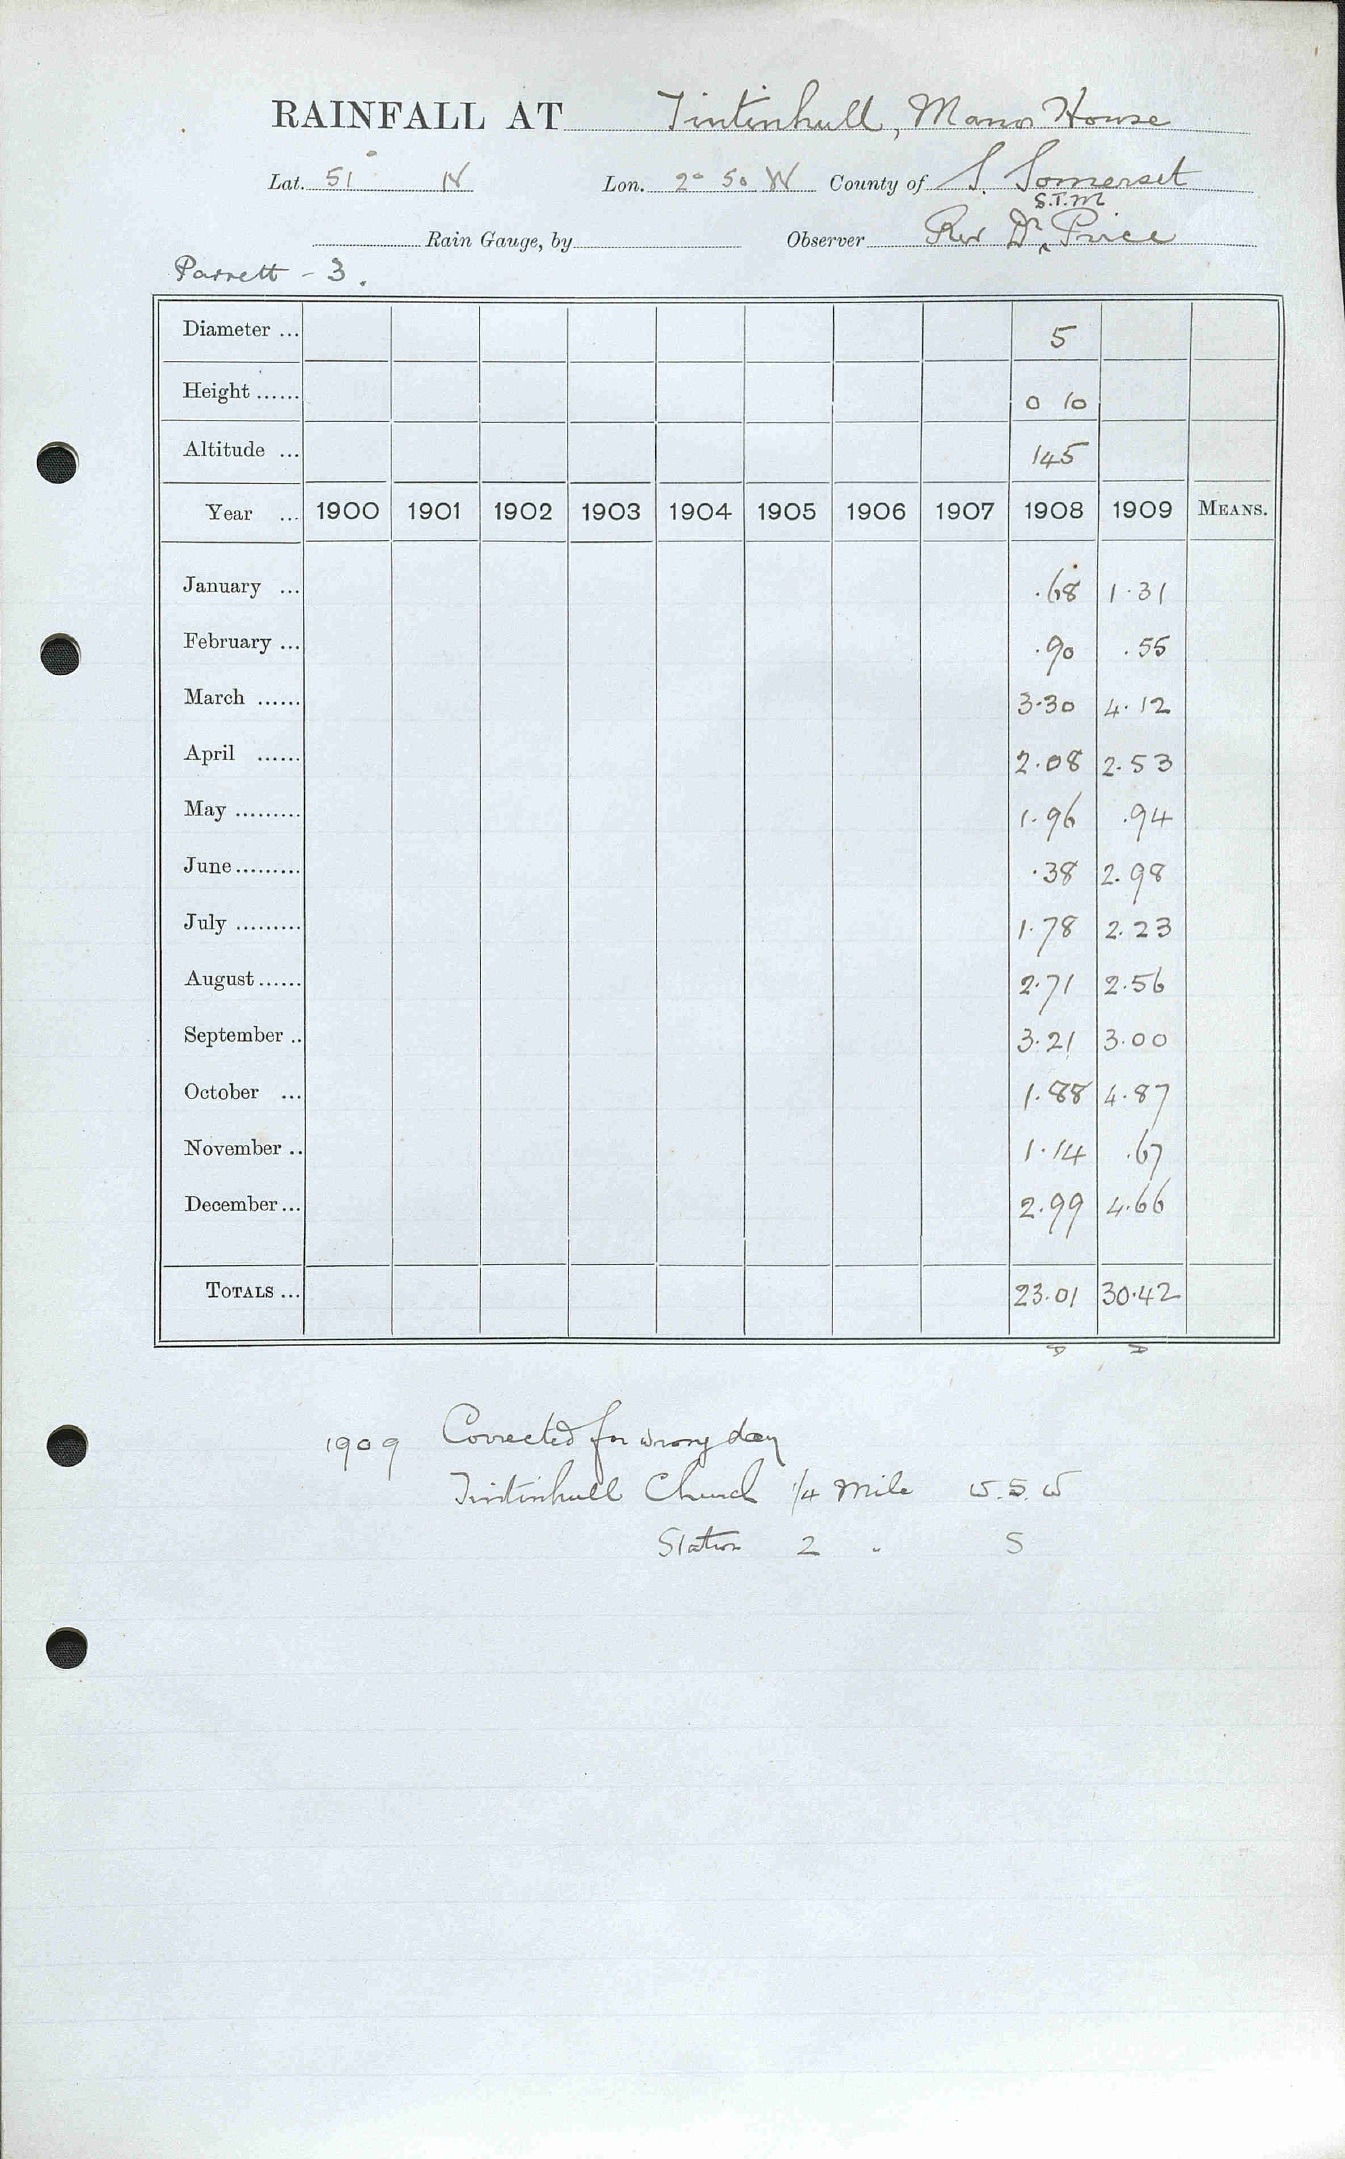 RAINFALL AT Tintinhull, Manor House
Lat. 51° N Lon. 2° 50 W County of S. Somerset
S.T.M
Rain Gauge, by Observer Rev Dr Price
Parrett - 3.
Diameter ... 5
Height ...... 0 10
Altitude ... 145
Year ... 1900 1901 1902 1903 1904 1905 1906 1907 1908 1909 MEANS.
January ... .68 1.31
February ... .90 .55
March ...... 3.30 4.12
April ...... 2.08 2.53
May ......... 1.96 .94
June ......... .38 2.98
July ......... 1.78 2.23
August ...... 2.71 2.56
September .. 3.21 3.00
October ... 1.88 4.87
November .. 1.14 .67
December ... 2.99 4.66
TOTALS ... 23.01 30.42
D D
1909 Corrected for wrong day
Tintinhull Church 1/4 Mile W.S.W
Station 2 " S